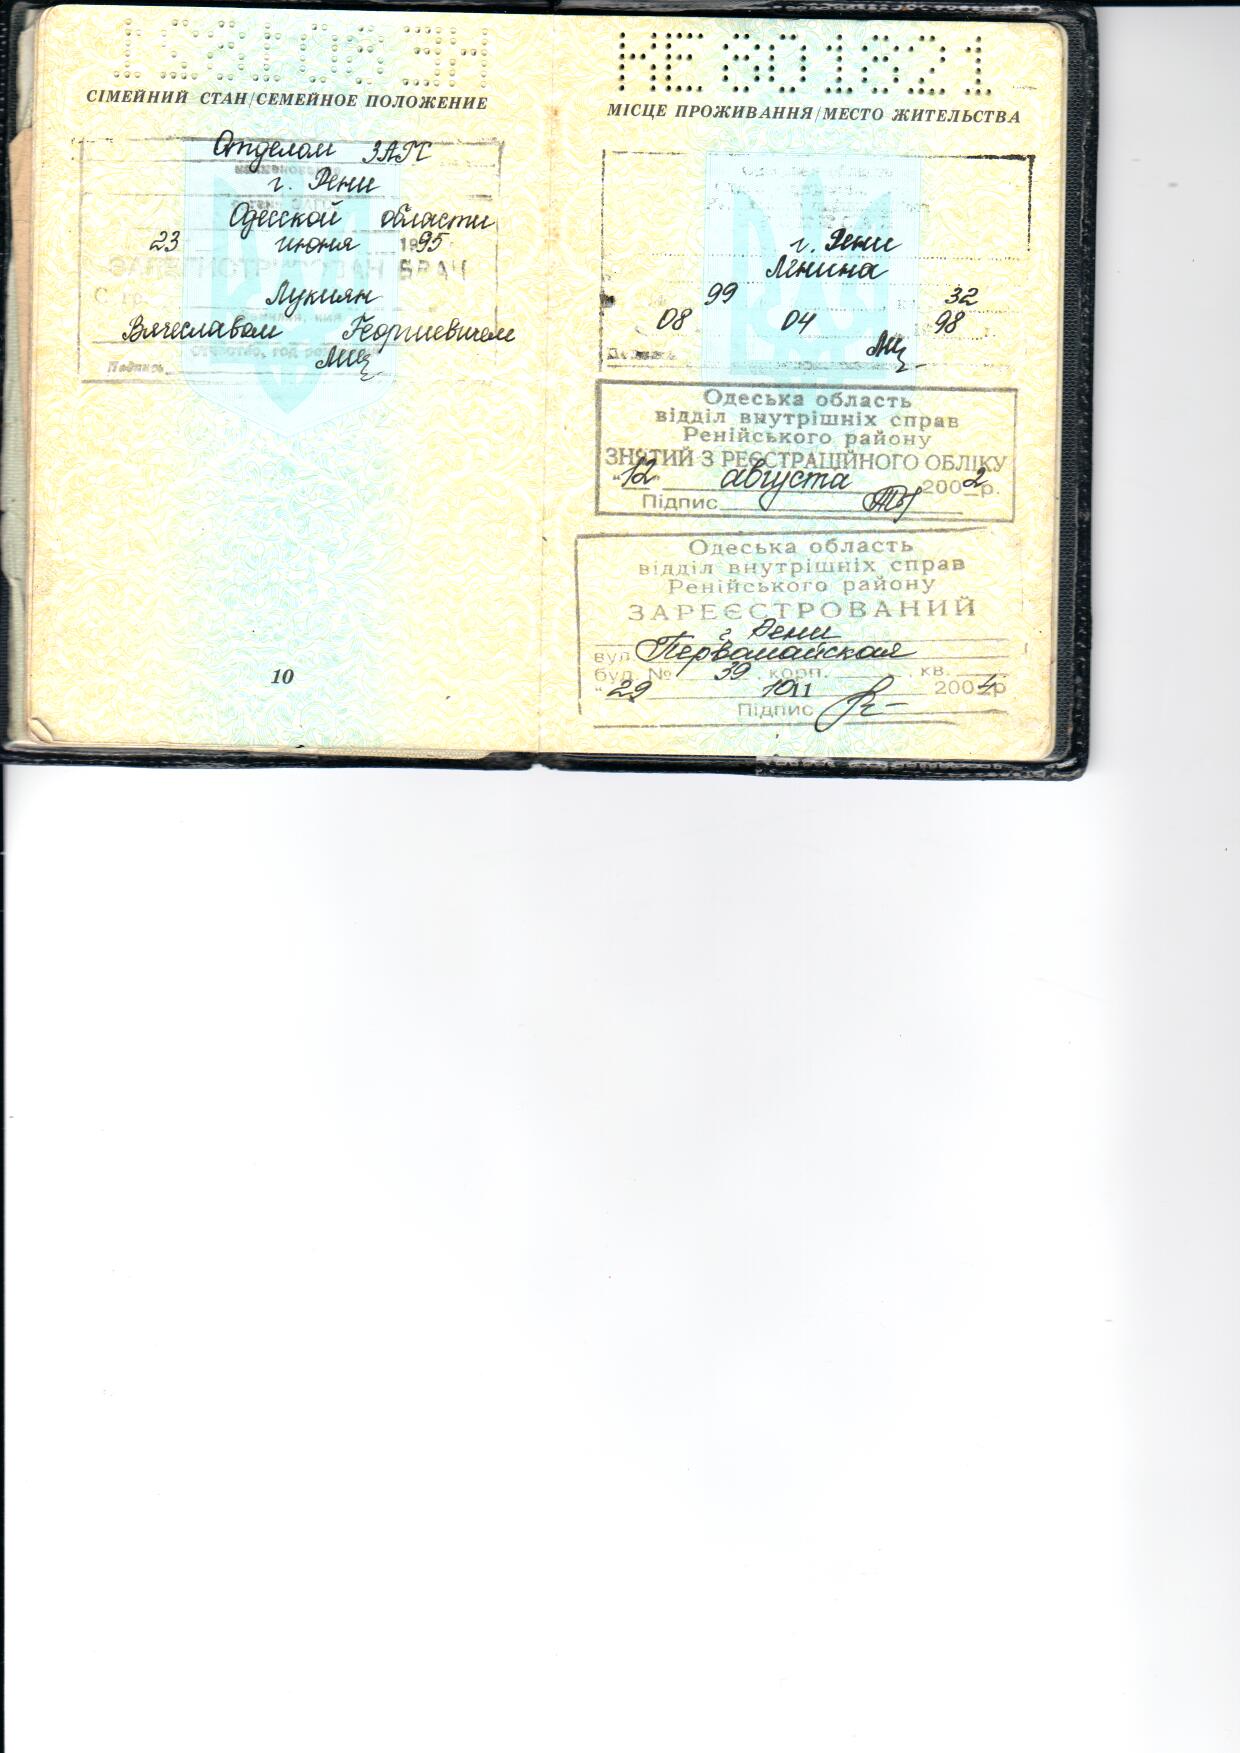 СІМЕЙНИЙ СТАН/СЕМЕЙНОЕ ПОЛОЖЕНИЕ
Отделом ЗАГС
г. Рени
Одесской области
23 июня 1995
ЗАРЕГИСТРИРОВАН БРАК
С гр. Лукиян
Вячеславом Георгиевичем
Подпись
10
НЕ 601821
МІСЦЕ ПРОЖИВАННЯ/МЕСТО ЖИТЕЛЬСТВА
г. Рени
Ленина
99 32
08 04 98
Одеська область
відділ внутрішніх справ
Ренійського району
ЗНЯТИЙ З РЕЄСТРАЦІЙНОГО ОБЛІКУ
"12" августа 2002 р.
Підпис
Одеська область
відділ внутрішніх справ
Ренійського району
ЗАРЕЄСТРОВАНИЙ
г Рени
вул. Первомайская
буд. № 39, корп. , кв.
"29 2004р
Підпис